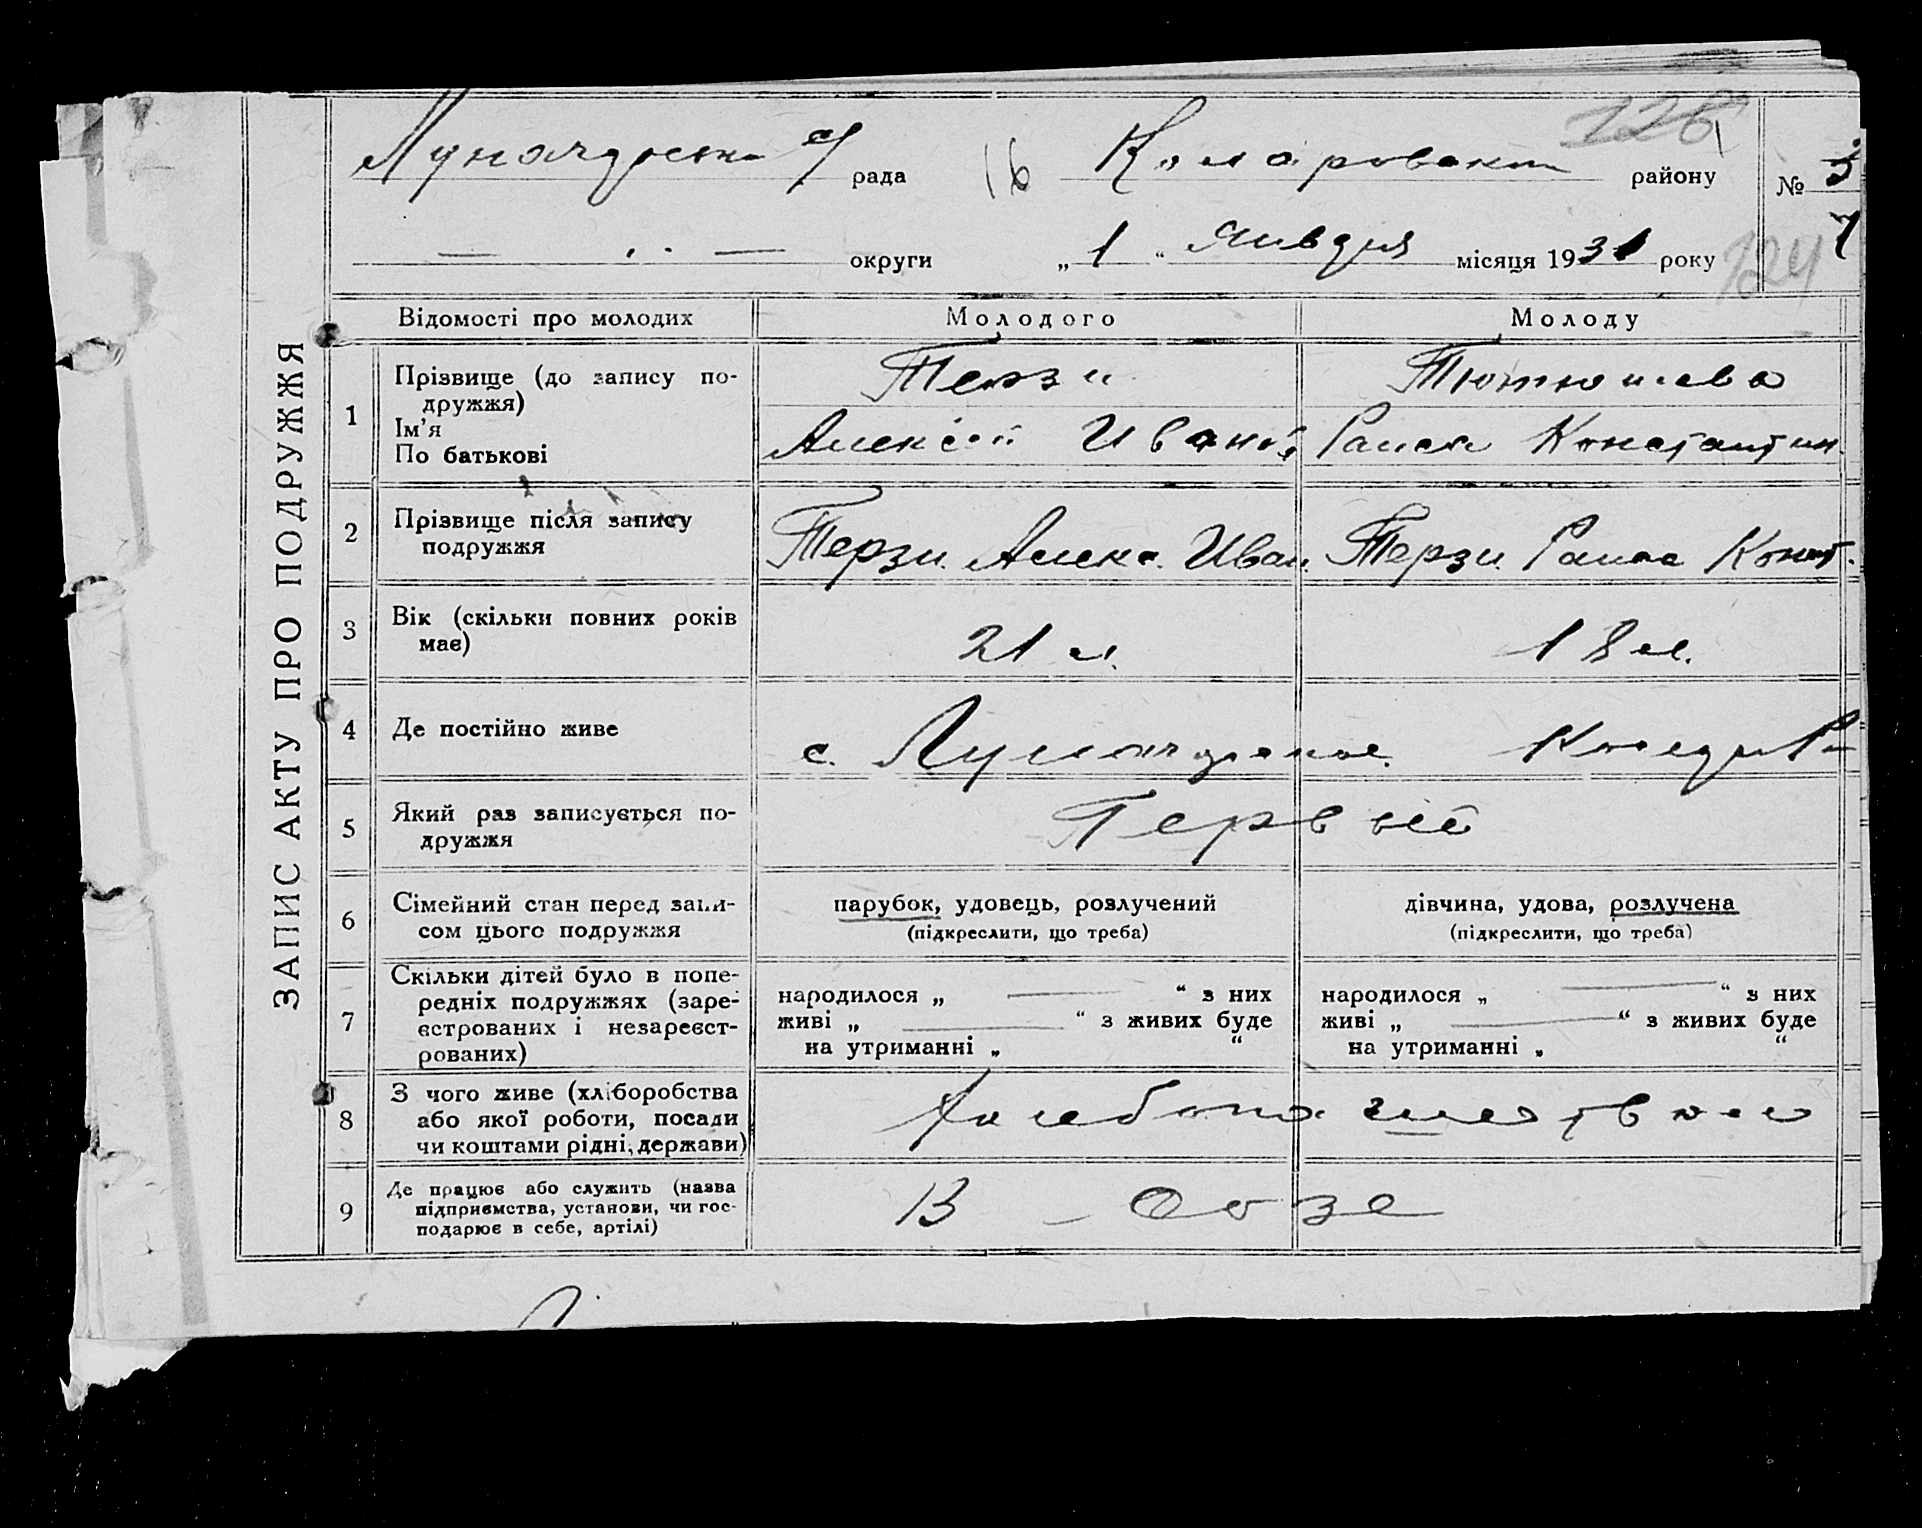 126
с/рада
16
району
№ 3
7
округи
„ 1 “ Января місяця 1931 року
124
ЗАПИС АКТУ ПРО ПОДРУЖЖЯ
Відомості про молодих
Молодого
Молоду
1
Прізвище (до запису по-
дружжя)
Ім’я
По батькові
Терзи
Алексей Иванов
Тютюшева
Раиса Константин.
2
Прізвище після запису
подружжя
Терзи. Алекс. Иван.
Терзи Раиса Конст.
3
Вік (скільки повних років
має)
21 л.
18 л.
4
Де постійно живе
с.
5
Який раз записується по-
дружжя
Первый
6
Сімейний стан перед запи-
сом цього подружжя
парубок, удовець, розлучений
(підкреслити, що треба)
дівчина, удова, розлучена
(підкреслити, що треба)
7
Скільки дітей було в попе-
редніх подружжях (заре-
єстрованих і незареєст-
рованих)
народилося „ — “ з них
живі „ — “ з живих буде
на утриманні „ “
народилося „ — “ з них
живі „ — “ з живих буде
на утриманні „ “
8
З чого живе (хліборобства
або якої роботи, посади
чи коштами рідні, держави)
Хлебопашеством
9
Де працює або служить (назва
підприємства, установи, чи гос-
подарює в себе, артілі)
В - созе